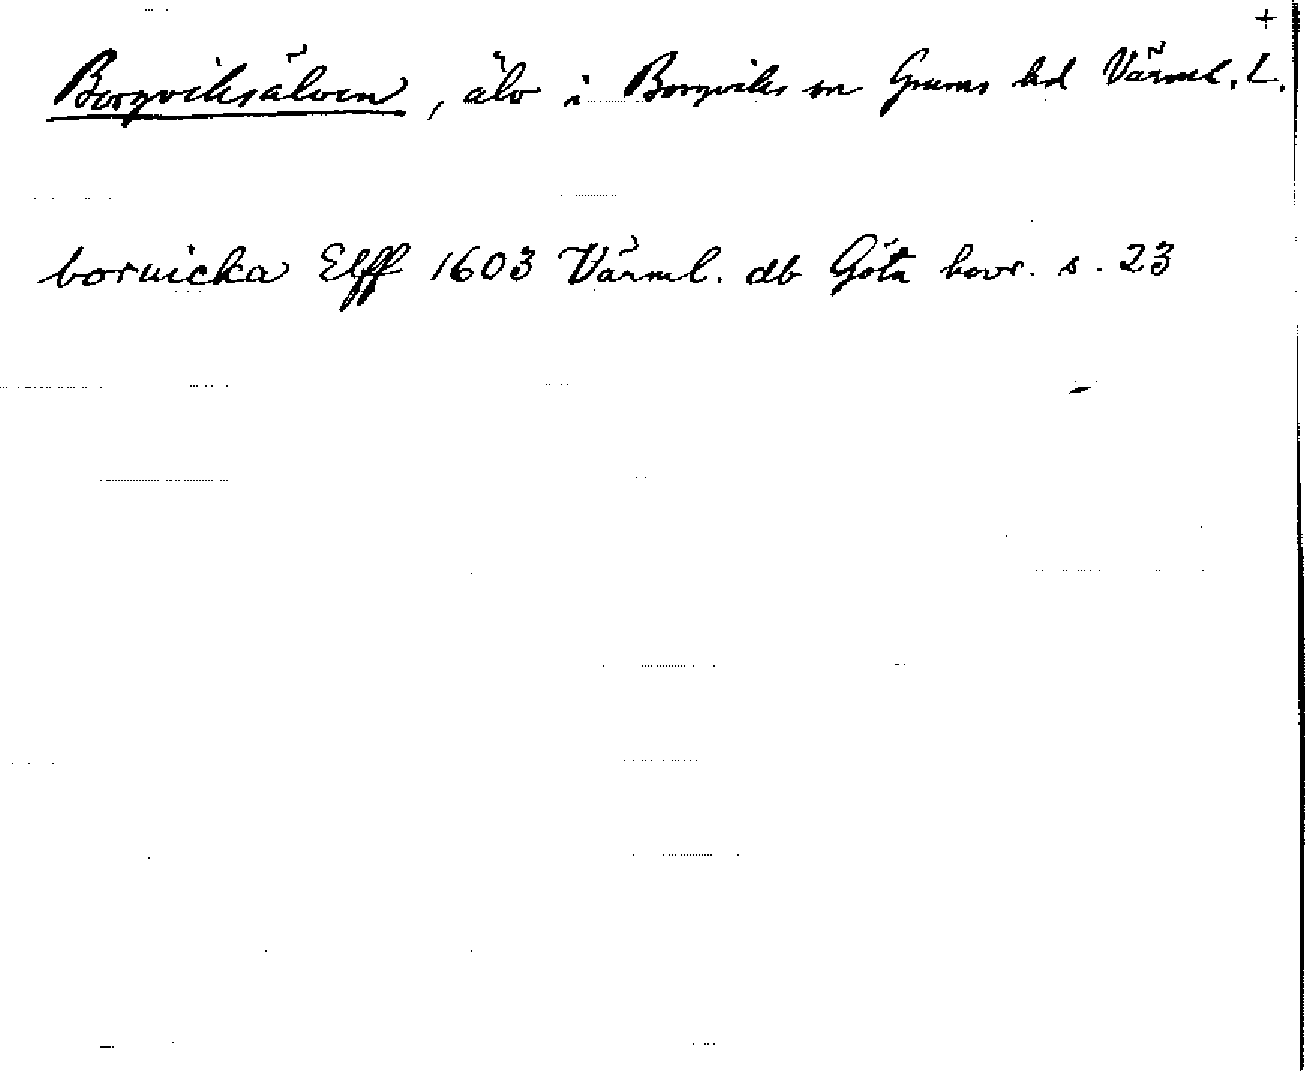 +
Borgviksälven, älv i Borgviks sn Grums hd Värml. L.
boruicka Elff 1603 Värml. db Göta hovr. s. 23